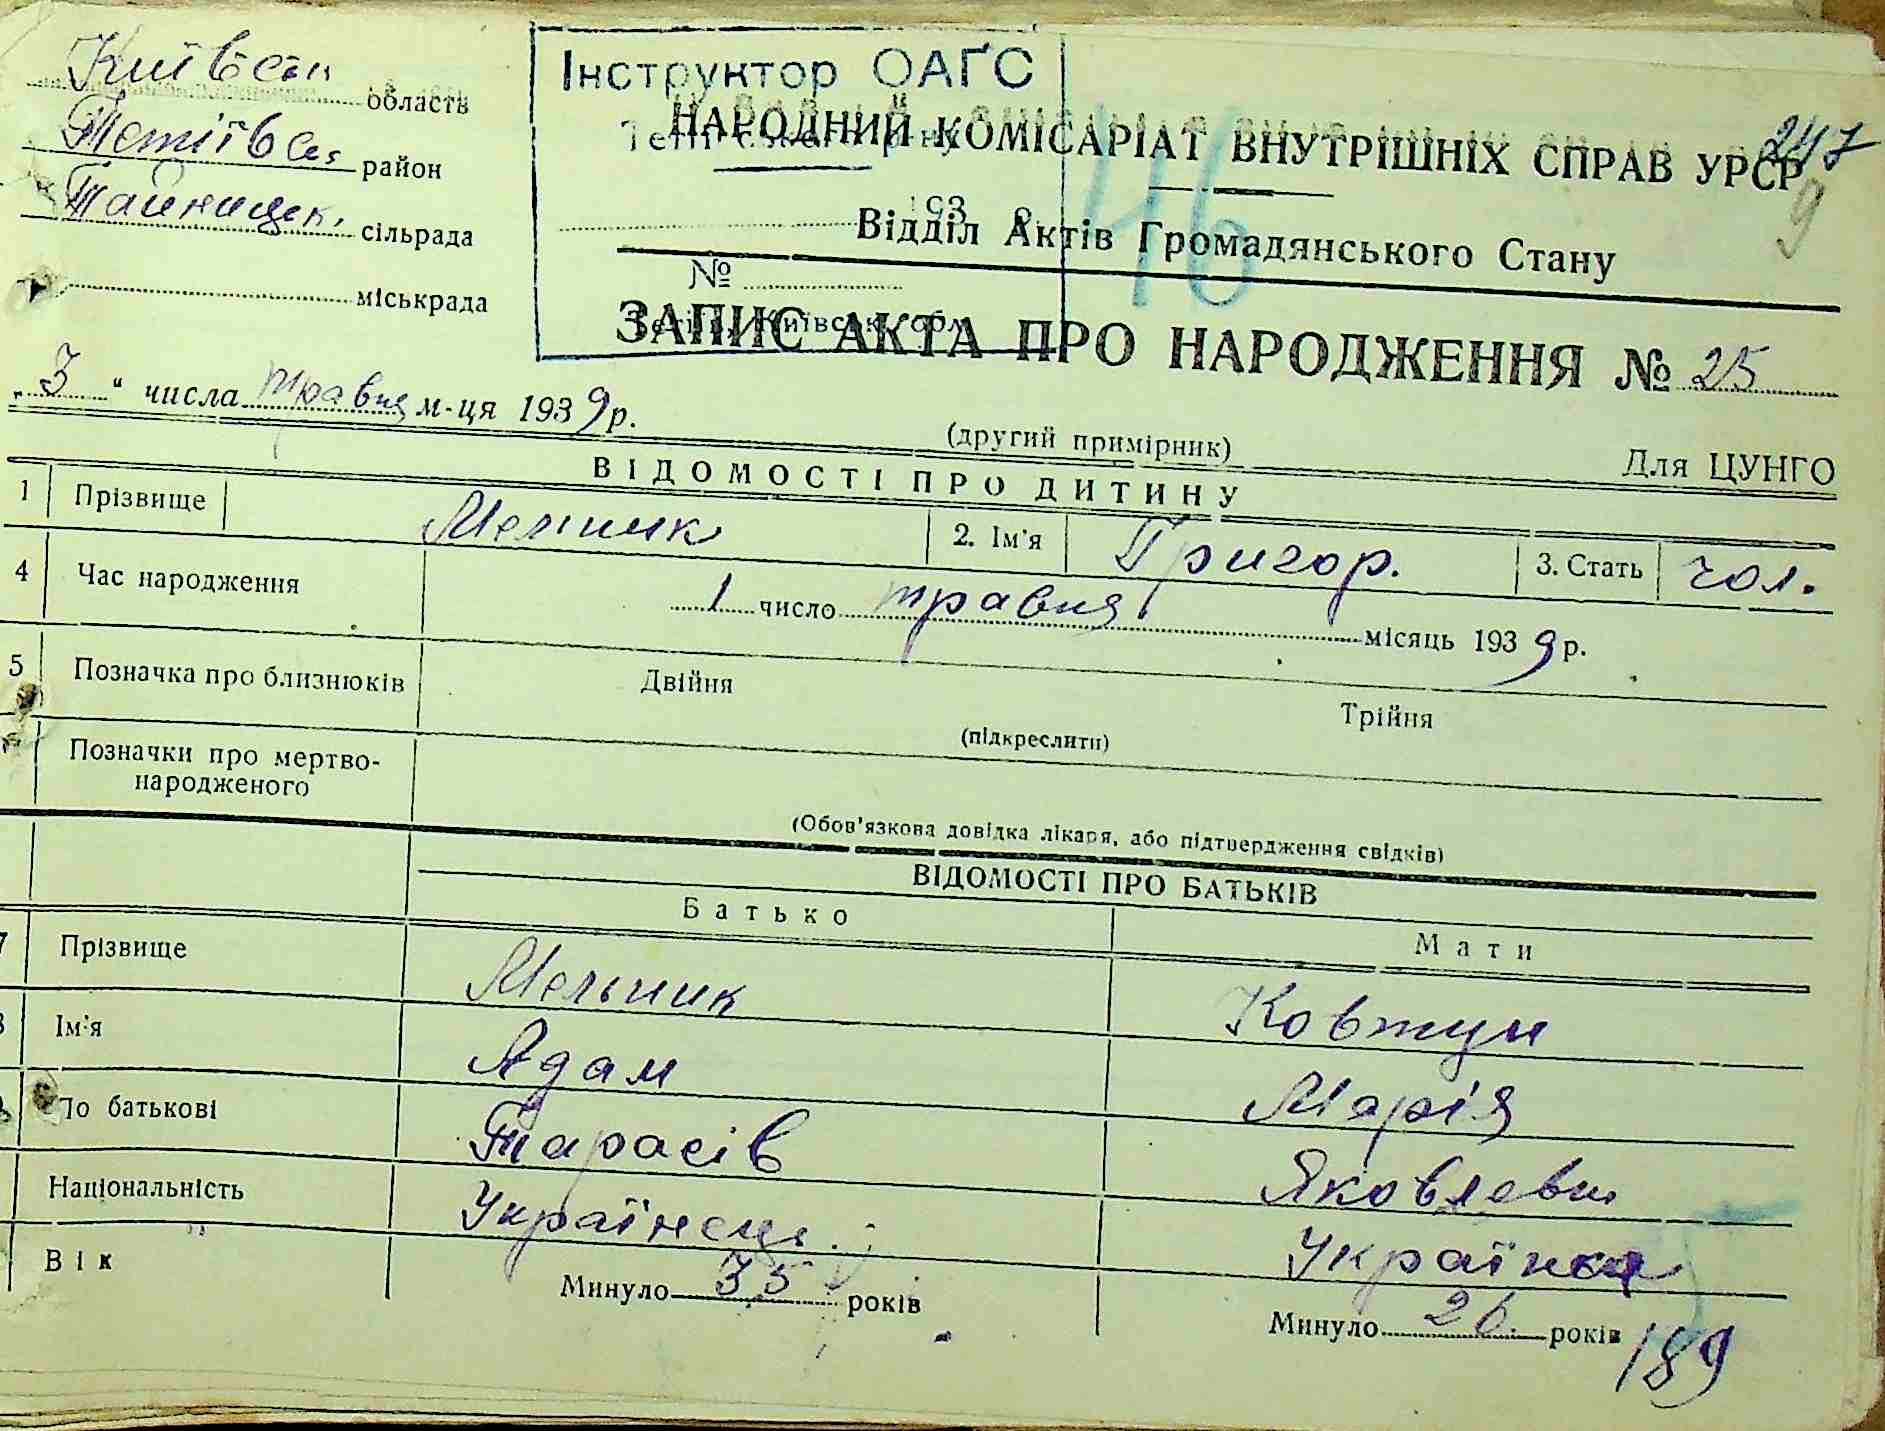 Київськ область
Тетіївськ район
Тайницьк. сільрада
міськрада
Інструктор ОАГС
№
Київськ обл
НАРОДНИЙ КОМІСАРІАТ ВНУТРІШНІХ СПРАВ УРСР
247
9
46
Відділ Актів Громадянського Стану
ЗАПИС АКТА ПРО НАРОДЖЕННЯ № 25
„3“ числа травня м-ця 1939 р.
(другий примірник)
Для ЦУНГО
ВІДОМОСТІ ПРО ДИТИНУ
1 Прізвище Мельник 2. Ім'я Григор. 3. Стать чол.
4 Час народження 1 число травня місяць 1939 р.
5 Позначка про близнюків Двійня Трійня
(підкреслити)
Позначки про мертво-
народженого
(Обов'язкова довідка лікаря, або підтвердження свідків)
ВІДОМОСТІ ПРО БАТЬКІВ
Батько Мати
7 Прізвище Мельник Ковтун
8 Ім'я Адам Марія
По батькові Тарасів Яковлевн
Національність Українець. Українка
Вік Минуло 35 років Минуло 26. років
189